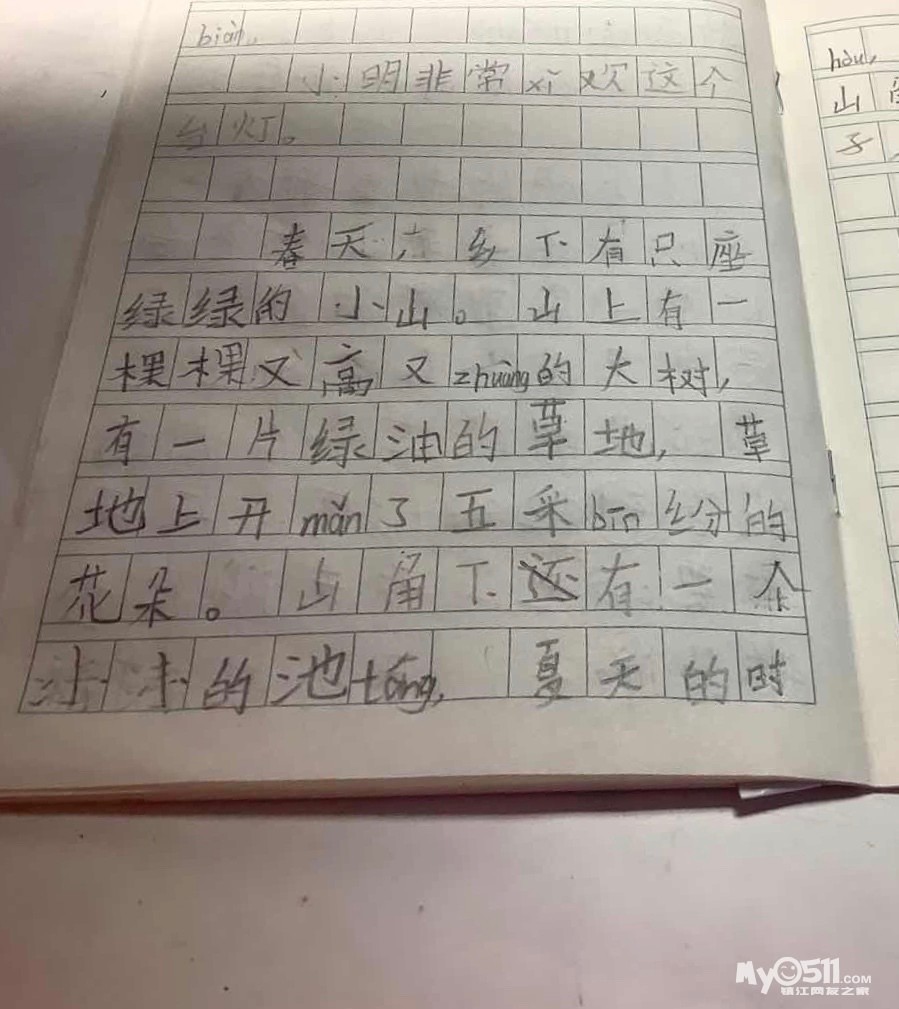 biàn,
小明非常xǐ欢这个
台灯。
春天,乡下有只座
绿绿的小山。山上有一
棵棵又高又zhuàng的大树,
有一片绿油的草地,草
地上开mǎn了五采bīn纷的
花朵。山角下还有一个
小小的池táng,夏天的时
hòu,
山
子
My0511.COM
镇江网友之家